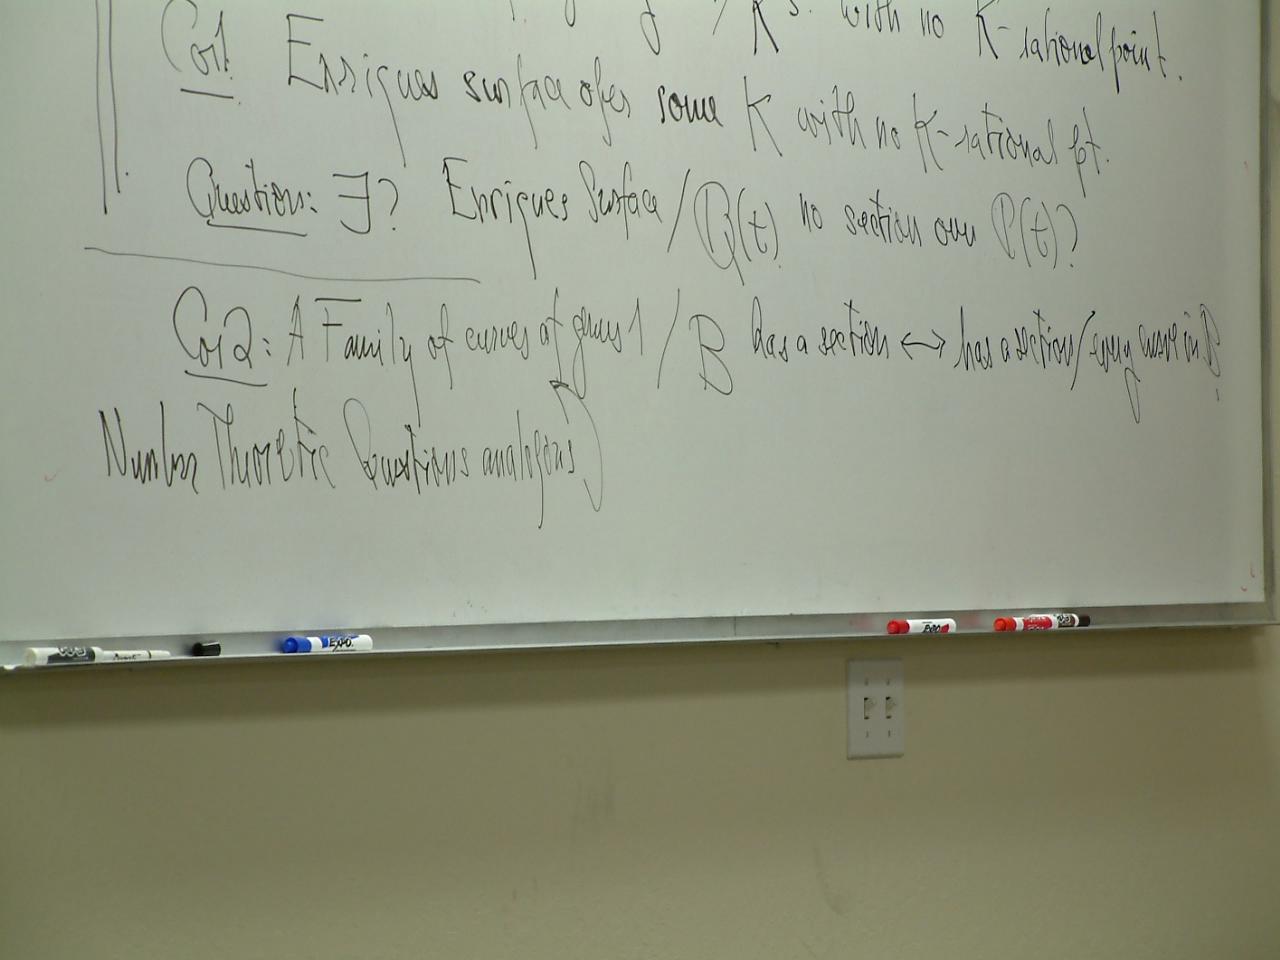 / K s. with no K-rational point.
Cor1. Enriques surface over some K with no K-rational pt.
Question: ∃? Enriques Surface / Q(t) no section over Q(t)?
Cor2: A Family of curves of genus 1 / B has a section ↔ has a section/every curve in B.
Number Theoretic Questions analogous
EXPO
EXPO